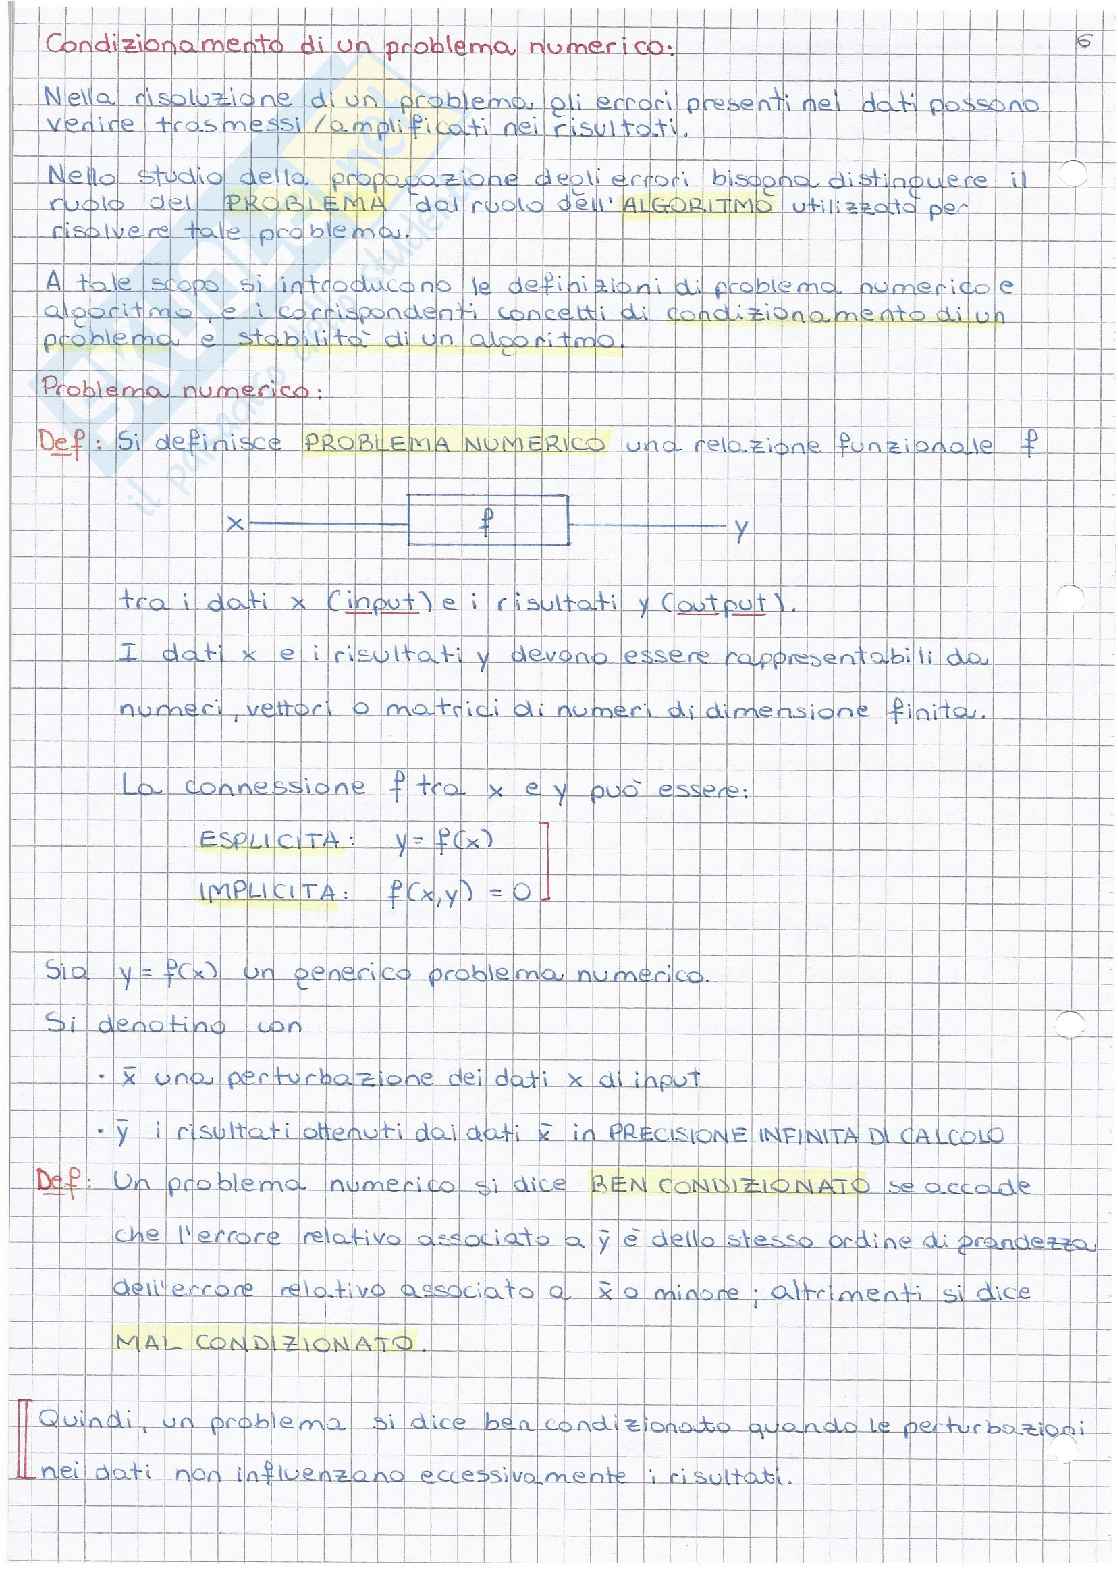 Condizionamento di un problema numerico:
6
Nella risoluzione di un problema gli errori presenti nei dati possono
venire trasmessi/amplificati nei risultati.
Nello studio della propagazione degli errori bisogna distinguere il
ruolo del PROBLEMA dal ruolo dell'ALGORITMO utilizzato per
risolvere tale problema.
A tale scopo si introducono le definizioni di problema numerico e
algoritmo, e i corrispondenti concetti di condizionamento di un
problema e stabilità di un algoritmo.
Problema numerico:
Def: Si definisce PROBLEMA NUMERICO una relazione funzionale f
x f y
tra i dati x (input) e i risultati y (output).
I dati x e i risultati y devono essere rappresentabili da
numeri, vettori o matrici di numeri di dimensione finita.
La connessione f tra x e y può essere:
ESPLICITA: y = f(x)
IMPLICITA: f(x,y) = 0
Sia y = f(x) un generico problema numerico.
Si denotino con
· x̄ una perturbazione dei dati x di input
· ȳ i risultati ottenuti dai dati x̄ in PRECISIONE INFINITA DI CALCOLO
Def: Un problema numerico si dice BEN CONDIZIONATO se accade
che l'errore relativo associato a ȳ è dello stesso ordine di grandezza
dell'errore relativo associato a x̄ o minore; altrimenti si dice
MAL CONDIZIONATO.
Quindi, un problema si dice ben condizionato quando le perturbazioni
nei dati non influenzano eccessivamente i risultati.